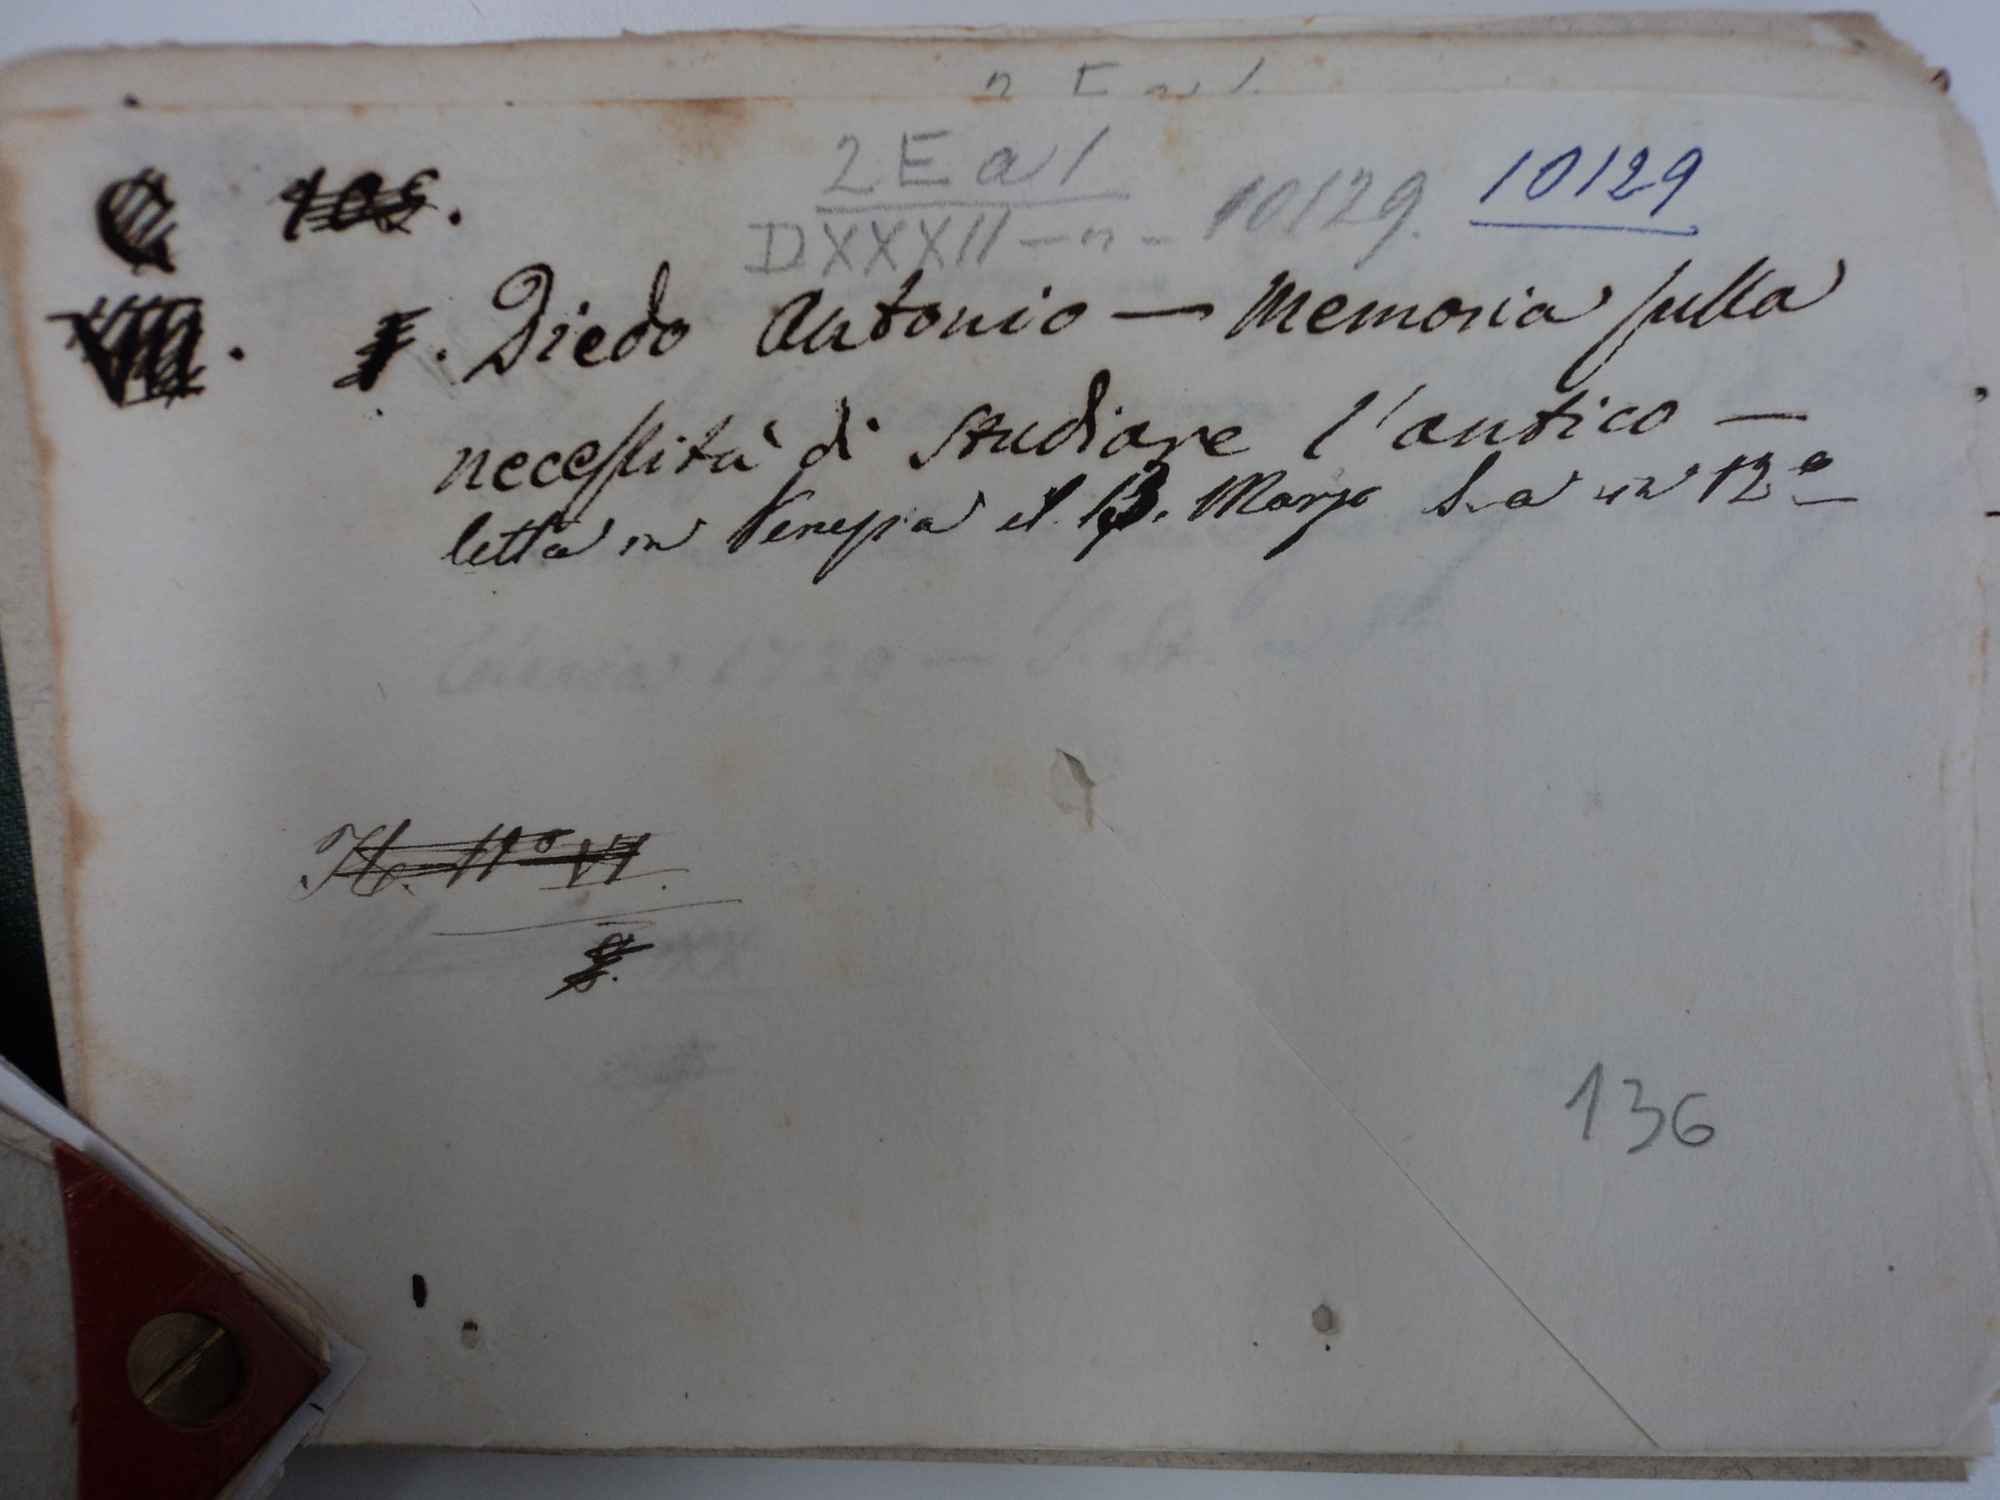 2 E a 1
DXXXII - n - 10129. 10129
Diedo Antonio — Memoria sulla
necessità di studiare l'antico —
letta in Venezia il 13. Marzo S. a in 12º
136